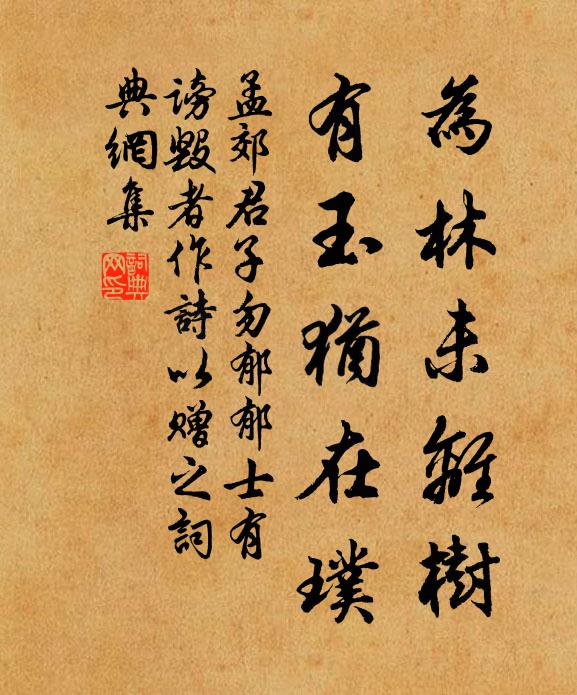 為林未離樹
有玉猶在璞
孟郊君子勿郁郁士有
謗毀者作詩以赠之詞
典網集
詞典網印